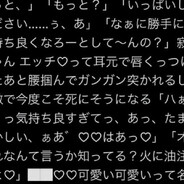 っと、」「もっと？」「いっぱいし
ださい……ぅ、あ」「なぁに勝手に
持ち良くなろーとして〜んの？」
ん エッチ♡って耳元で唇くっつ
たあと腰掴んでガンガン突かれるし
で今度こそ死にそうになる「ハぁ
っ気持ち良すぎてっ、あっ、たま
かしい、ぁあ゛♡♡はあっ♡」「オ
れなんて言うか知ってる？火に油注
♡」███♡♡可愛い可愛いって名